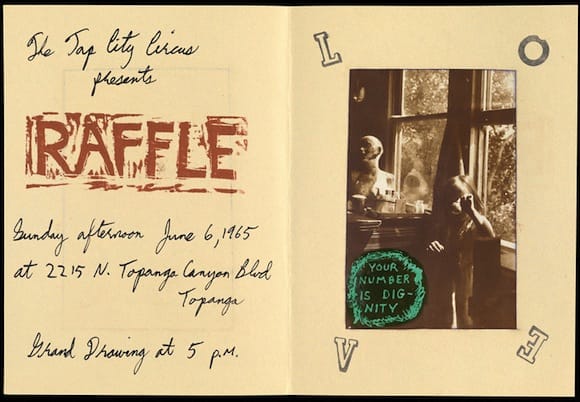 The Tap City Circus
presents
RAFFLE
Sunday afternoon June 6, 1965
at 2215 N. Topanga Canyon Blvd
Topanga
Grand Drawing at 5 p.m.
L O
YOUR
NUMBER
IS DIG-
NITY
V E